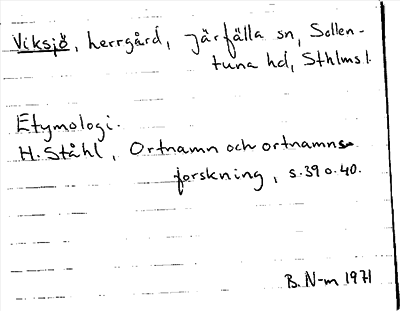 Viksjö, herrgård, Järfälla sn, Sollen-
tuna hd, Sthlms l.
Etymologi.
H. Ståhl, Ortnamn och ortnamns-
forskning, s. 39 o. 40.
B. N-m 1971